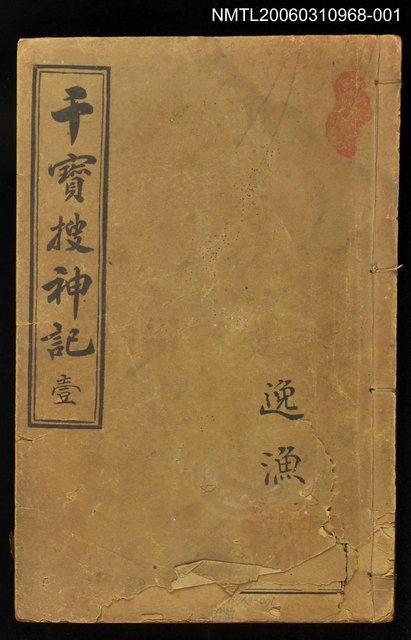 NMTL20060310968-001
干寶搜神記 壹
逸漁